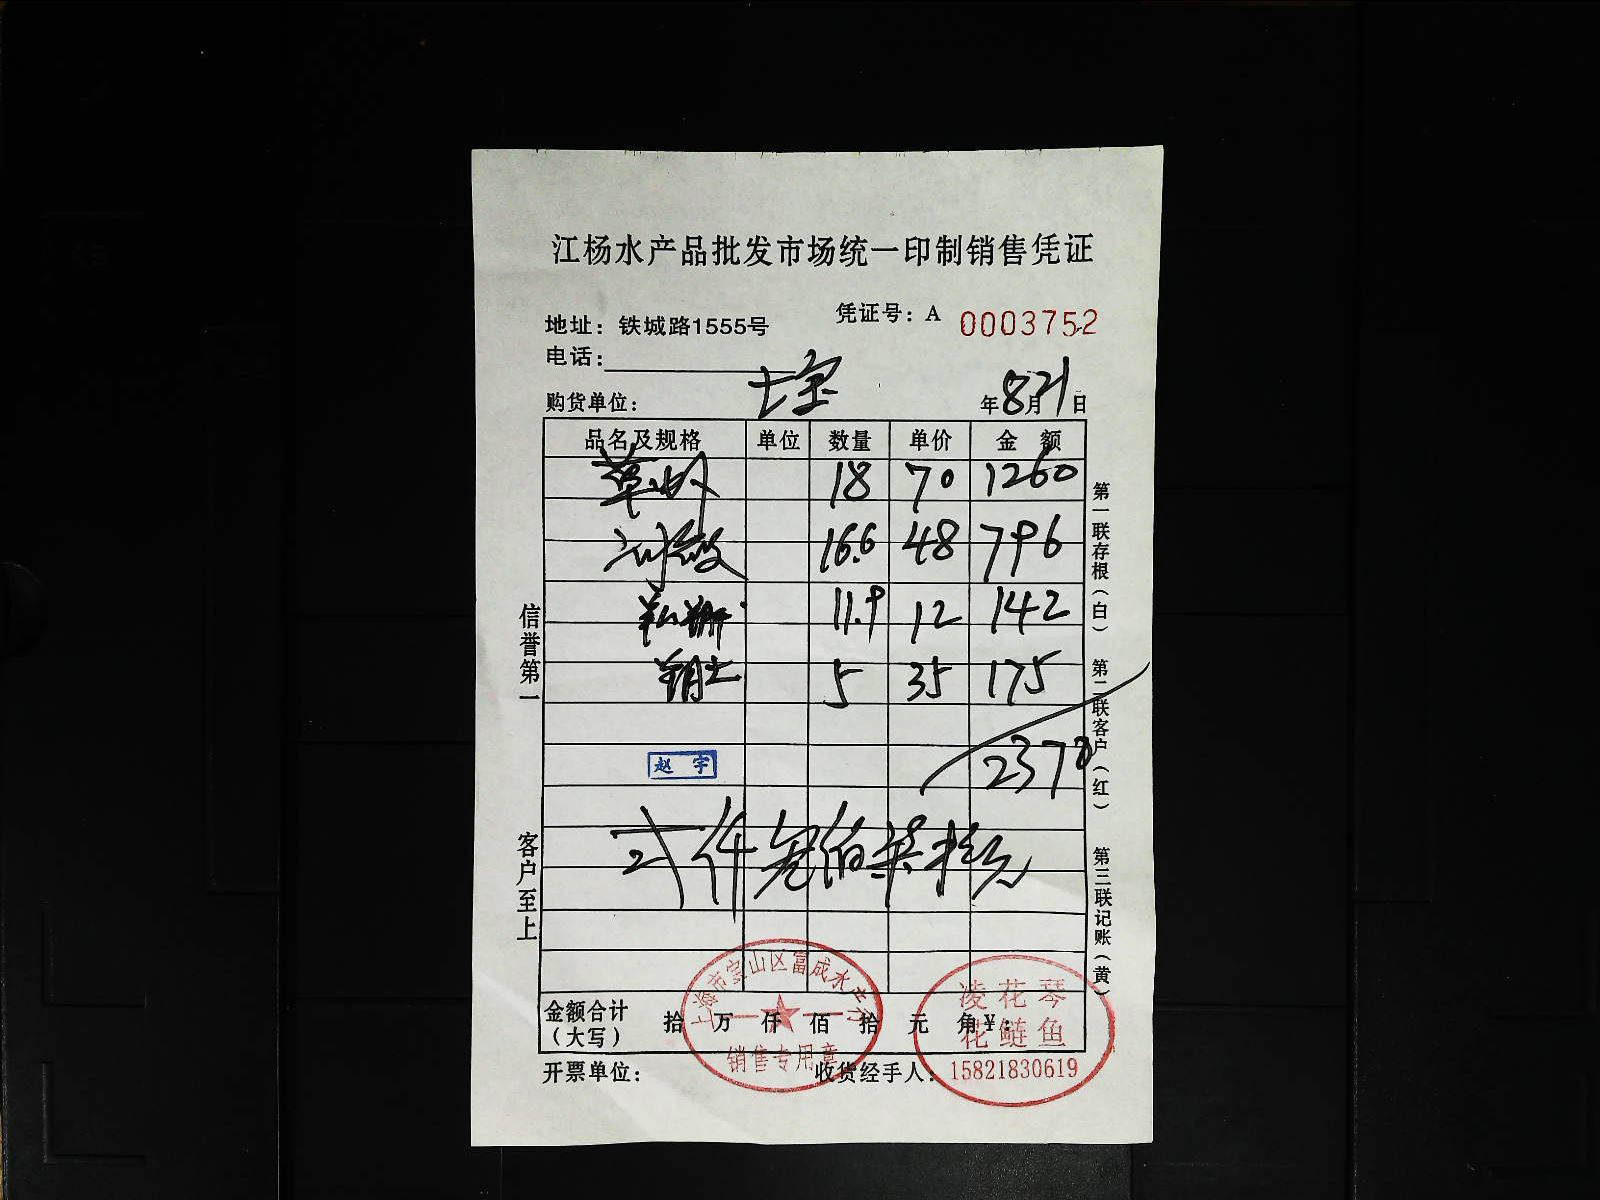 江杨水产品批发市场统一印制销售凭证
凭证号：A 0003752
地址：铁城路1555号
电话：
七宝
购货单位： 年8月21日
品名及规格 单位 数量 单价 金额
草 18 70 1260
16.6 48 796
11.9 12 142
5 35 175
2373
赵宇
贰仟叁佰柒拾元
金额合计（大写） 拾 万 仟 佰 拾 元 角 ¥：
开票单位： 收货经手人：
信誉第一 客户至上
第一联存根（白） 第二联客户（红） 第三联记账（黄）
上海市宝山区富成水产行
销售专用章
凌花琴
花鲢鱼
15821830619